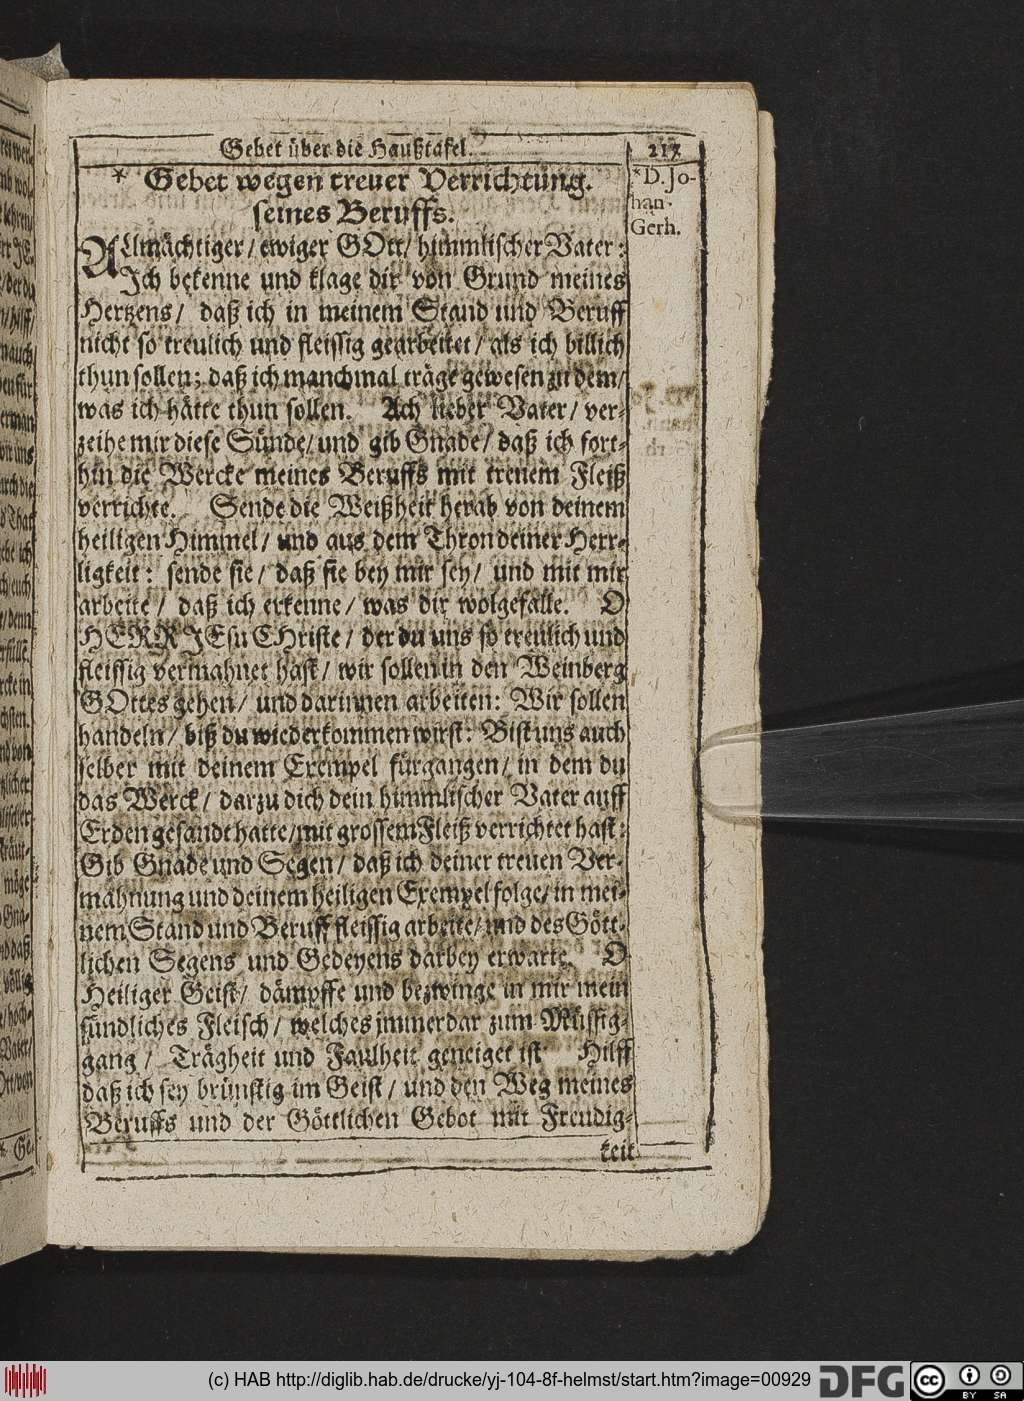 Gebet über die Haußtafel. 217
* Gebet wegen treuer Verrichtung
seines Beruffs.
*D. Jo-
han.
Gerh.
ALlmächtiger/ ewiger GOtt/ himmlischer Vater:
Ich bekenne und klage dir von Grund meines
Hertzens/ daß ich in meinem Stand und Beruff
nicht so treulich und fleissig gearbeitet/ als ich billich
thun sollen; daß ich manchmal träge gewesen zu dem/
was ich hätte thun sollen. Ach lieber Vater/ ver-
zeihe mir diese Sünde/ und gib Gnade/ daß ich fort-
hin die Wercke meines Beruffs mit treuem Fleiß
verrichte. Sende die Weißheit herab von deinem
heiligen Himmel/ und aus dem Thron deiner Herr-
ligkeit: sende sie/ daß sie bey mir sey/ und mit mir
arbeite/ daß ich erkenne/ was dir wolgefalle. O
HERR JEsu CHriste/ der du uns so treulich und
fleissig vermahnet hast/ wir sollen in den Weinberg
GOttes gehen/ und darinnen arbeiten: Wir sollen
handeln/ biß du wiederkommen wirst: Bist uns auch
selber mit deinem Exempel fürgangen/ in dem du
das Werck/ darzu dich dein himmlischer Vater auff
Erden gesandt hatte/ mit grossem Fleiß verrichtet hast:
Gib Gnade und Segen/ daß ich deiner treuen Ver-
mahnung und deinem heiligen Exempel folge/ in mei-
nem Stand und Beruff fleissig arbeite/ und des Gött-
lichen Segens und Gedeyens darbey erwarte. O
Heiliger Geist/ dämpffe und bezwinge in mir mein
sündliches Fleisch/ welches immerdar zum Müssig-
gang/ Trägheit und Faulheit geneiget ist Hilff
daß ich sey brünstig im Geist/ und den Weg meines
Beruffs und der Göttlichen Gebot mit Freudig-
keit
(c) HAB http://diglib.hab.de/drucke/yj-104-8f-helmst/start.htm?image=00929
DFG
cc BY SA